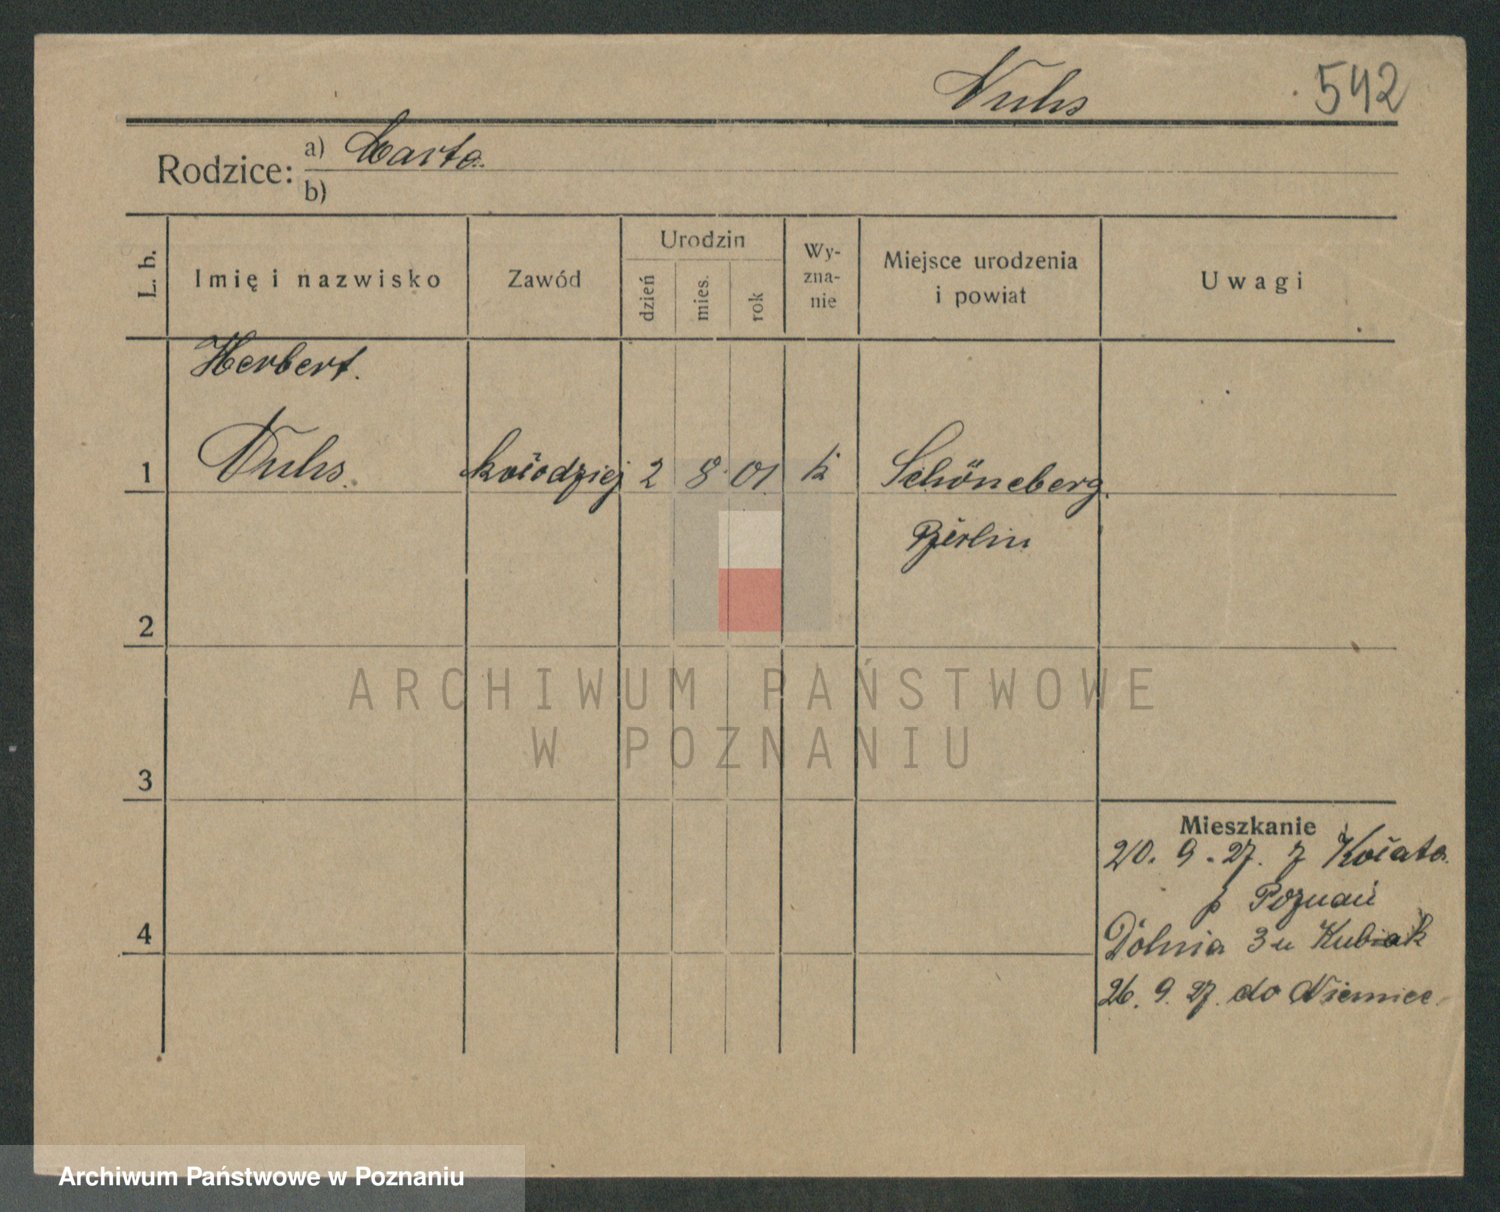 Nuhs 542
Rodzice: a) Marta
b)
L. b. Imię i nazwisko Zawód Urodzin dzień mies. rok Wy- zna- nie Miejsce urodzenia i powiat Uwagi
Herbert.
1 Nuhs. kołodziej 2 8 01 k Schöneberg.
Berlin
2
3
Mieszkanie
20. 9. 27. z
p Poznań
4 Dolnia 3 u Kubiak
26. 9. 27. do Niemiec.
ARCHIWUM PAŃSTWOWE
W POZNANIU
Archiwum Państwowe w Poznaniu